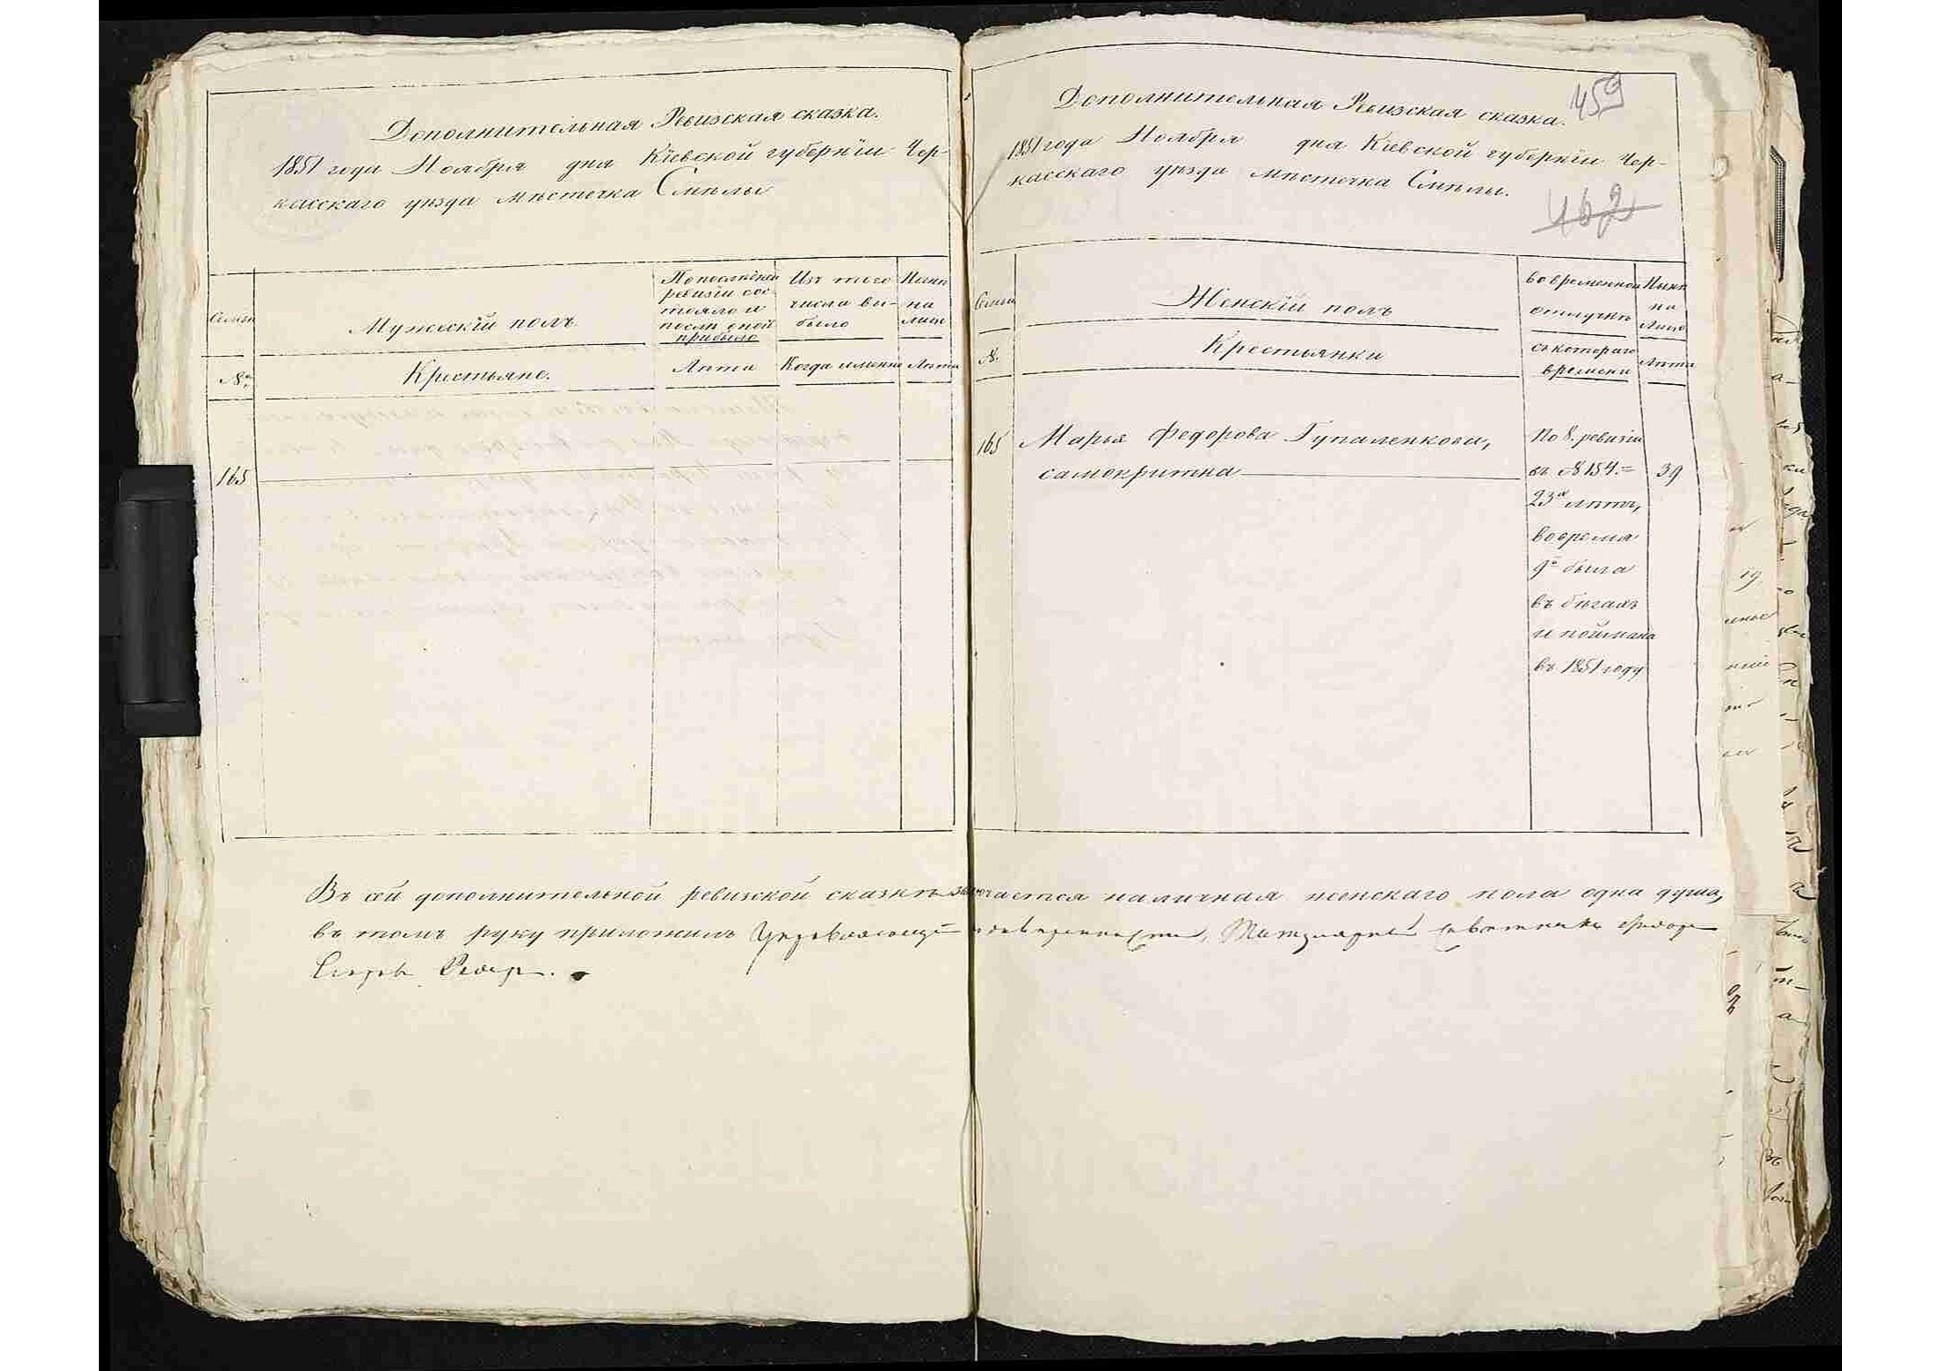 Дополнительная Ревизская сказка.
1851 года Ноября дня Кіевской губерніи Чер-
касскаго уѣзда мѣстечка Смѣлы
Семьи
Мужескій полъ.
По послѣдней
ревизіи сос-
тояло и
послѣ оной
прибыло
Изъ того
числа вы-
было
Нынѣ
на
лицо
№.
Крестьяне.
Лѣта
Когда именно
Лѣта
165
Дополнительная Ревизская сказка.
459
1851 года Ноября дня Кіевской губерніи Чер-
касскаго уѣзда мѣстечка Смѣлы.
462
Семьи
Женскій полъ
во временной
отлучкѣ
Нынѣ
на
лицо
№.
Крестьянки
съ котораго
времени
Лѣта
165 Марья Федорова Гупаленкова,
самокритка
По 8. ревизіи
въ № 154. =
23х лѣтъ,
во время
9й была
въ бѣгахъ
и поймана
въ 1851 году
39
Въ сей дополнительной ревизской сказкѣ значается наличная женскаго пола одна душа,
въ томъ руку приложилъ Управляющій Титулярный Совѣтникъ